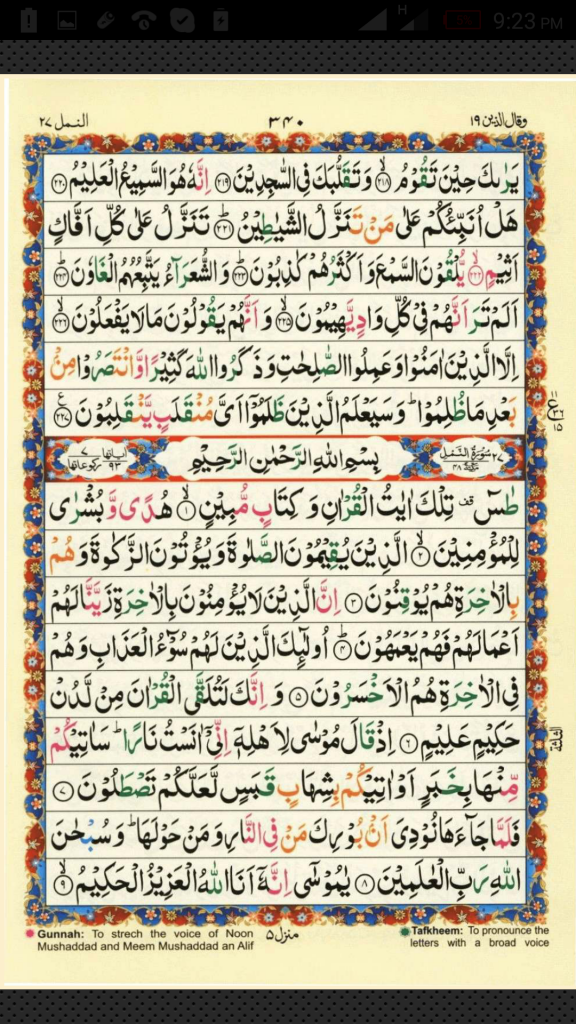 9:23 PM
النمل ٢٧
٣٤٠
وقال الذین ١٩
یَرٰىكَ حِیْنَ تَقُوْمُ ﴿۲۱۸﴾ وَتَقَلُّبَكَ فِی السّٰجِدِیْنَ ﴿۲۱۹﴾ اِنَّهٗ هُوَ السَّمِیْعُ الْعَلِیْمُ ﴿۲۲۰﴾
هَلْ اُنَبِّئُكُمْ عَلٰی مَنْ تَنَزَّلُ الشَّیٰطِیْنُ ﴿۲۲۱﴾ تَنَزَّلُ عَلٰی كُلِّ اَفَّاكٍ
اَثِیْمٍ ﴿۲۲۲﴾ یُّلْقُوْنَ السَّمْعَ وَاَكْثَرُهُمْ كٰذِبُوْنَ ﴿۲۲۳﴾ وَالشُّعَرَآءُ یَتَّبِعُهُمُ الْغَاوٗنَ ﴿۲۲۴﴾
اَلَمْ تَرَ اَنَّهُمْ فِیْ كُلِّ وَادٍ یَّهِیْمُوْنَ ﴿۲۲۵﴾ وَاَنَّهُمْ یَقُوْلُوْنَ مَا لَا یَفْعَلُوْنَ ﴿۲۲۶﴾
اِلَّا الَّذِیْنَ اٰمَنُوْا وَعَمِلُوا الصّٰلِحٰتِ وَذَكَرُوا اللّٰهَ كَثِیْرًا وَّانْتَصَرُوْا مِنْۢ
بَعْدِ مَا ظُلِمُوْا ؕ وَسَیَعْلَمُ الَّذِیْنَ ظَلَمُوْۤا اَیَّ مُنْقَلَبٍ یَّنْقَلِبُوْنَ ﴿۲۲۷﴾
ع
١١
٣٦
١٥
٢٧ سُوْرَةُ النَّمْلِ مَكِّیَّةٌ ٤٨
بِسْمِ اللّٰهِ الرَّحْمٰنِ الرَّحِیْمِ
اٰیاتها ٩٣ ركوعاتها ٧
طٰسٓ قف تِلْكَ اٰیٰتُ الْقُرْاٰنِ وَكِتَابٍ مُّبِیْنٍ ﴿۱﴾ هُدًی وَّبُشْرٰی
لِلْمُؤْمِنِیْنَ ﴿۲﴾ الَّذِیْنَ یُقِیْمُوْنَ الصَّلٰوةَ وَیُؤْتُوْنَ الزَّكٰوةَ وَهُمْ
بِالْاٰخِرَةِ هُمْ یُوْقِنُوْنَ ﴿۳﴾ اِنَّ الَّذِیْنَ لَا یُؤْمِنُوْنَ بِالْاٰخِرَةِ زَیَّنَّا لَهُمْ
اَعْمَالَهُمْ فَهُمْ یَعْمَهُوْنَ ﴿۴﴾ اُولٰٓئِكَ الَّذِیْنَ لَهُمْ سُوْٓءُ الْعَذَابِ وَهُمْ
فِی الْاٰخِرَةِ هُمُ الْاَخْسَرُوْنَ ﴿۵﴾ وَاِنَّكَ لَتُلَقَّی الْقُرْاٰنَ مِنْ لَّدُنْ
حَكِیْمٍ عَلِیْمٍ ﴿۶﴾ اِذْ قَالَ مُوْسٰی لِاَهْلِهٖۤ اِنِّیْۤ اٰنَسْتُ نَارًا ؕ سَاٰتِیْكُمْ
مِّنْهَا بِخَبَرٍ اَوْ اٰتِیْكُمْ بِشِهَابٍ قَبَسٍ لَّعَلَّكُمْ تَصْطَلُوْنَ ﴿۷﴾
فَلَمَّا جَآءَهَا نُوْدِیَ اَنْۢ بُوْرِكَ مَنْ فِی النَّارِ وَمَنْ حَوْلَهَا ؕ وَسُبْحٰنَ
اللّٰهِ رَبِّ الْعٰلَمِیْنَ ﴿۸﴾ یٰمُوْسٰۤی اِنَّهٗۤ اَنَا اللّٰهُ الْعَزِیْزُ الْحَكِیْمُ ﴿۹﴾
الثلثة
Gunnah: To strech the voice of Noon
Mushaddad and Meem Mushaddad an Alif
منزل ٥
Tafkheem: To pronounce the
letters with a broad voice